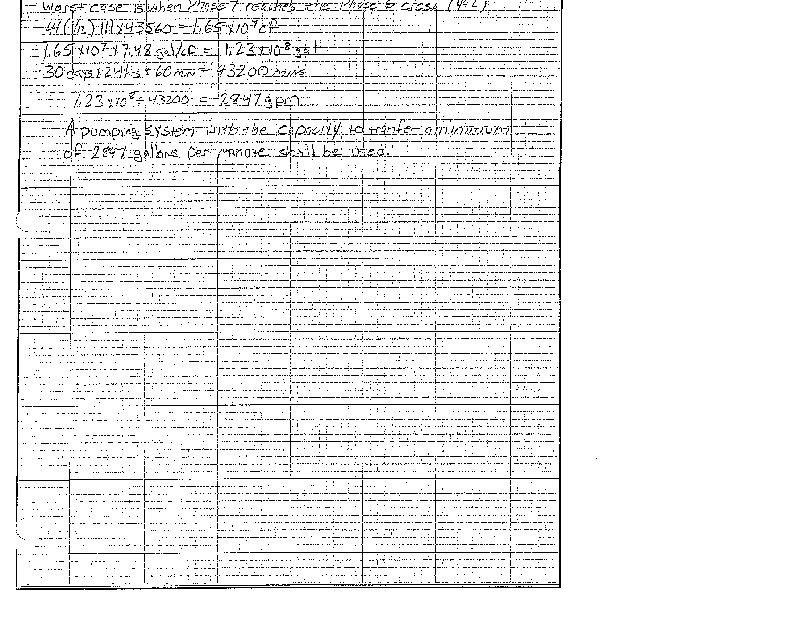 Worst case is when Phase 1 reaches the Phase 2 crest
43560 = 1.65 x 10⁷ cf
1.65 x 10⁷ x 7.48 gal/cf = 1.23 x 10⁸ gal
30 days x 24 hrs x 60 min = 43200 mins
1.23 x 10⁸ ÷ 43200 = 2847 gpm
A pumping system with the capacity to transfer a minimum
of 2847 gallons per minute shall be used.